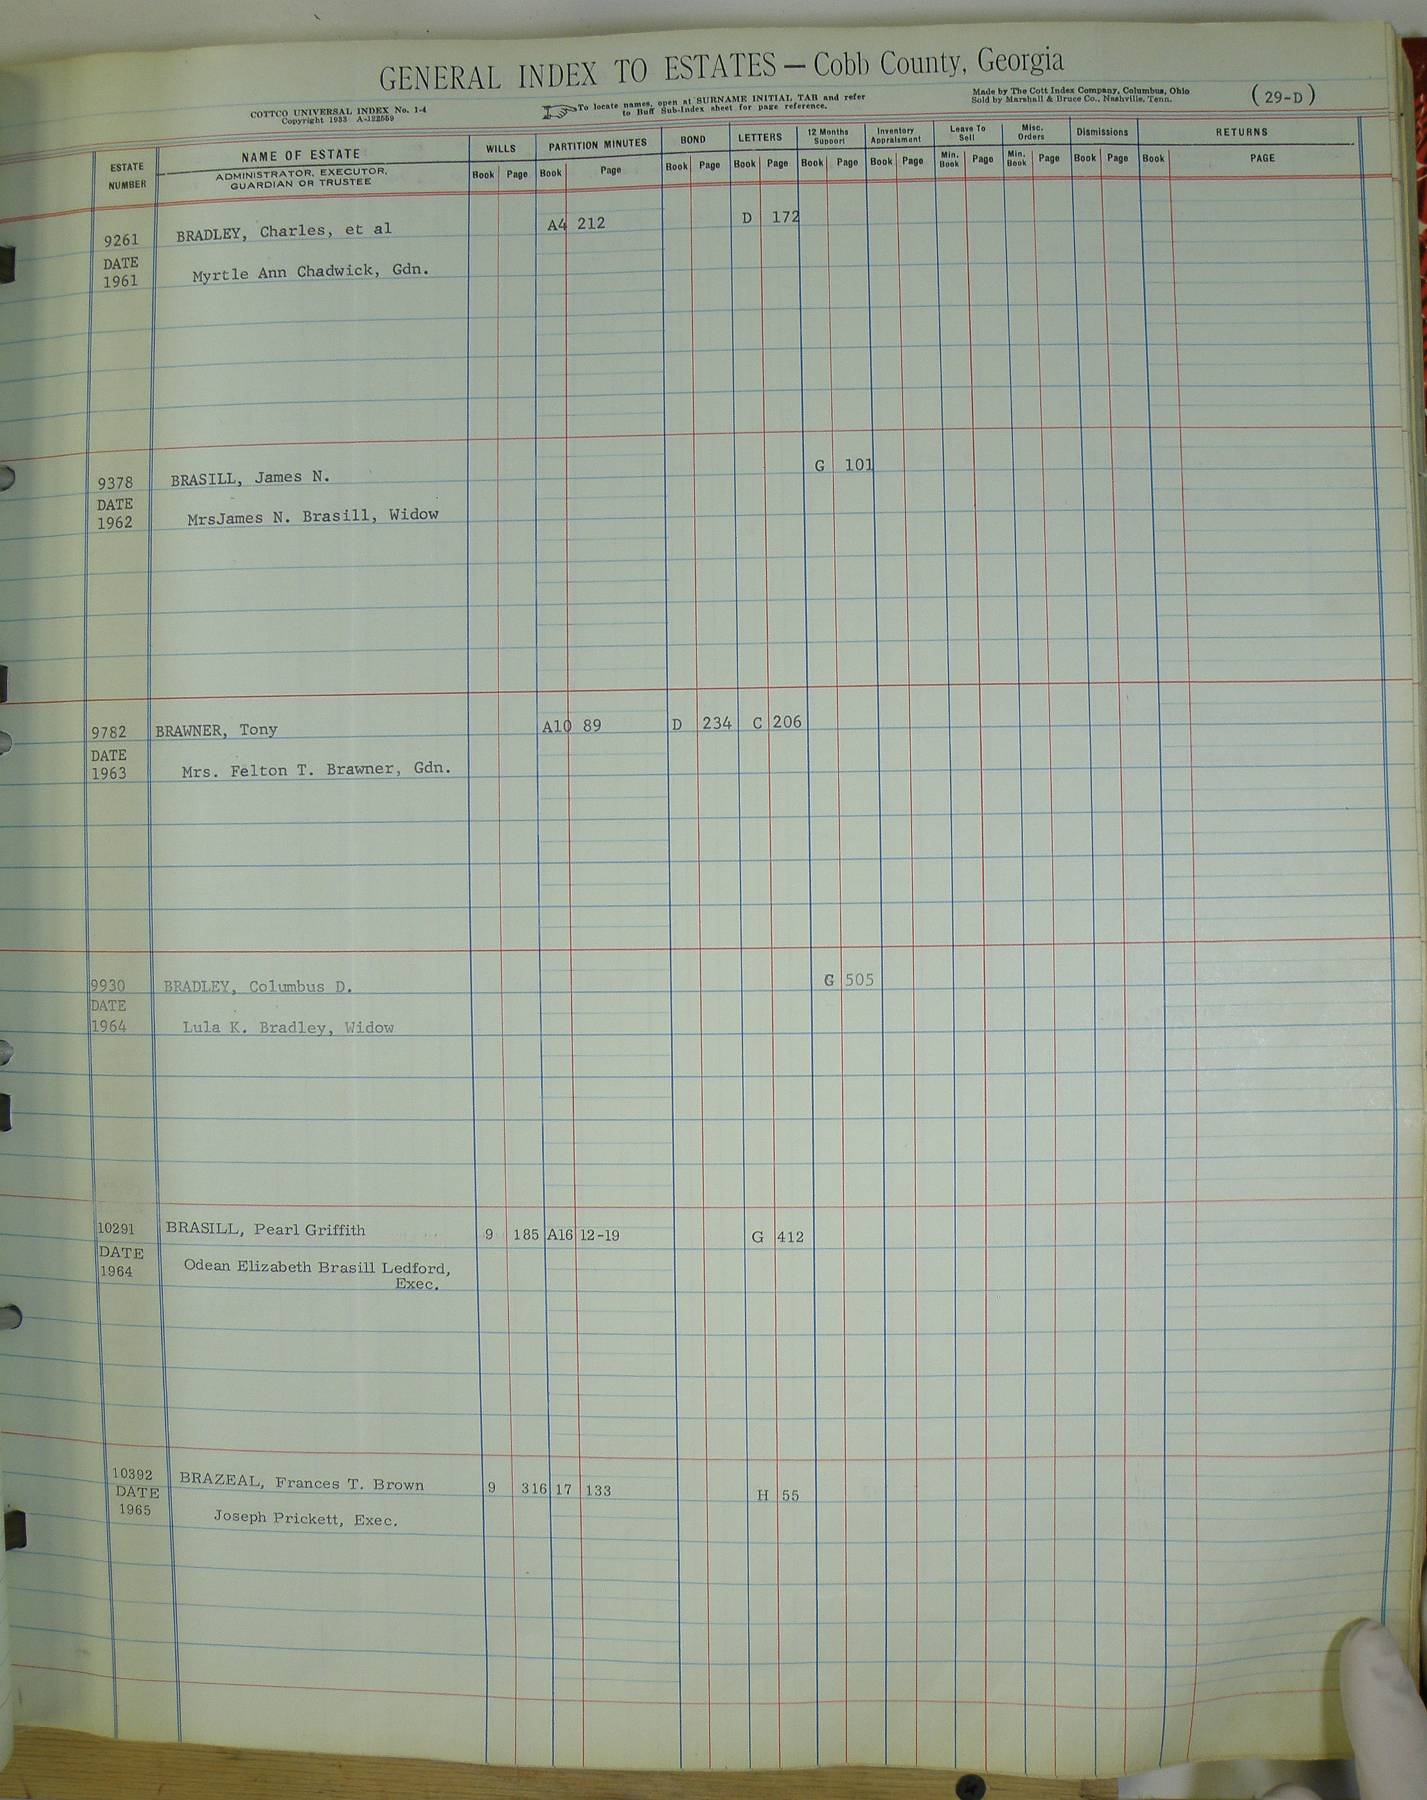 GENERAL INDEX TO ESTATES — Cobb County, Georgia
COTTCO UNIVERSAL INDEX No. 1-4
Copyright 1933 A-122559
To locate names, open at SURNAME INITIAL TAB and refer
to Buff Sub-Index sheet for page reference.
Made by The Cott Index Company, Columbus, Ohio
Sold by Marshall & Bruce Co., Nashville, Tenn.
(29-D)
ESTATE NUMBER
NAME OF ESTATE
ADMINISTRATOR, EXECUTOR,
GUARDIAN OR TRUSTEE
WILLS Book Page
PARTITION MINUTES Book Page
BOND Book Page
LETTERS Book Page
12 Months Support Book Page
Inventory Appraisment Book Page
Leave To Sell Min. Book Page
Misc. Orders Min. Book Page
Dismissions Book Page
RETURNS Book PAGE
9261 BRADLEY, Charles, et al A4 212 D 172
DATE
1961 Myrtle Ann Chadwick, Gdn.
9378 BRASILL, James N. G 101
DATE
1962 MrsJames N. Brasill, Widow
9782 BRAWNER, Tony A10 89 D 234 C 206
DATE
1963 Mrs. Felton T. Brawner, Gdn.
9930 BRADLEY, Columbus D. G 505
DATE
1964 Lula K. Bradley, Widow
10291 BRASILL, Pearl Griffith 9 185 A16 12-19 G 412
DATE
1964 Odean Elizabeth Brasill Ledford,
Exec.
10392 BRAZEAL, Frances T. Brown 9 316 17 133 H 55
DATE
1965 Joseph Prickett, Exec.